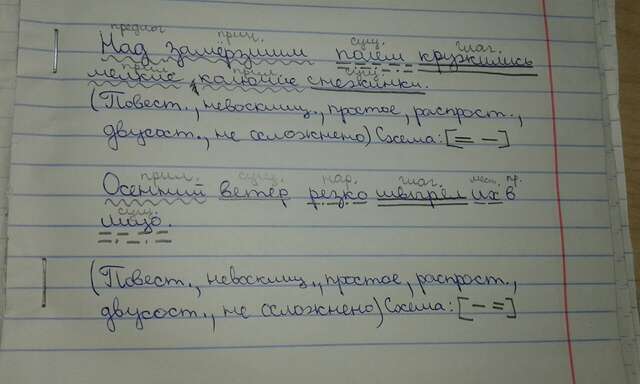 предлог прил. сущ. глаг.
Над замёрзшим полем кружились
прил. прил. сущ.
мелкие, колючие снежинки.
(Повест., невосклиц., простое, распрост.,
двусост., не осложнено) Схема: [= –]
прил. сущ. нар. глаг. мест. пр.
Осенний ветер резко швырял их в
сущ.
лицо.
(Повест., невосклиц., простое, распрост.,
двусост., не осложнено) Схема: [– =]